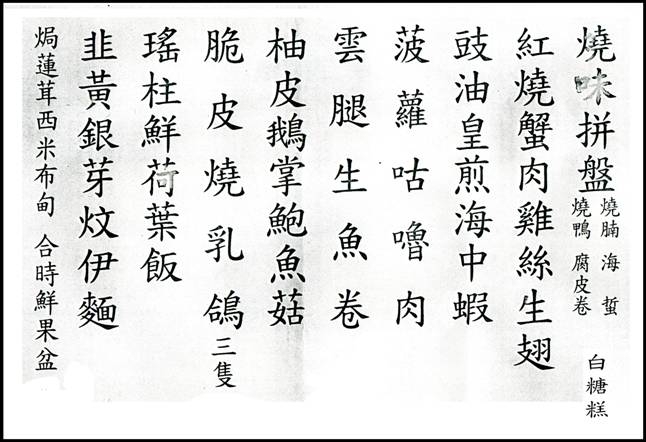 燒味拼盤
燒腩 海蜇
燒鴨 腐皮卷
白糖糕
紅燒蟹肉雞絲生翅
豉油皇煎海中蝦
菠蘿咕嚕肉
雲腿生魚卷
柚皮鵝掌鮑魚菇
脆皮燒乳鴿三隻
瑤柱鮮荷葉飯
韭黃銀芽炆伊麵
焗蓮茸西米布甸 合時鮮果盆